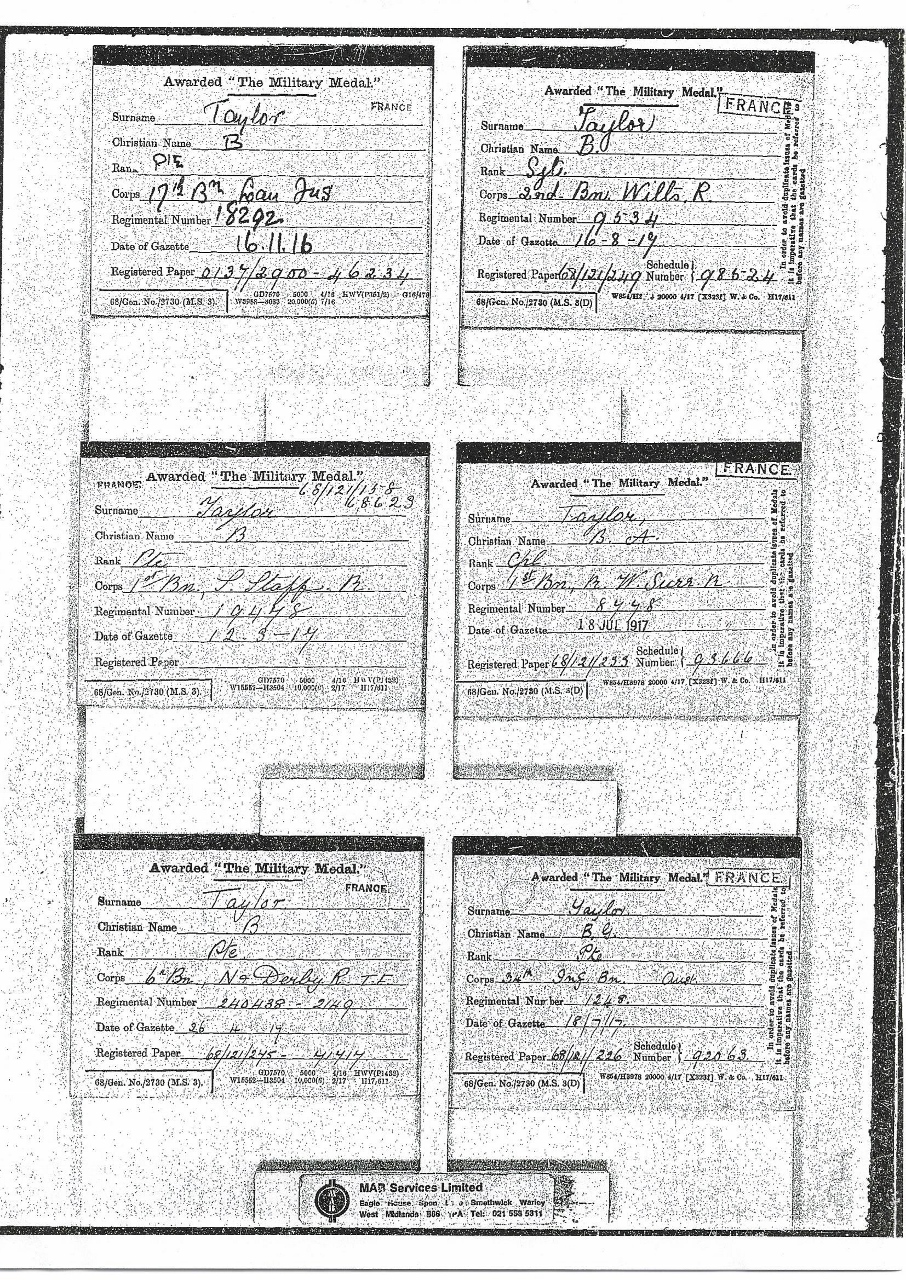 Awarded "The Military Medal."
FRANCE
Surname Taylor
Christian Name B
Rank Pte
Corps 17th Bn Lan Fus
Regimental Number 18292
Date of Gazette 16.11.16
Registered Paper 0137/2900 - 46234
68/Gen. No./2730 (M.S. 3).
GD7570 5000 4/16 HWV(P1351/2) G16/478
20,000(6) 7/16
Awarded "The Military Medal."
FRANCE
Surname Taylor
Christian Name B.
Rank Sgt.
Corps 2nd. Bn. Wilts. R.
Regimental Number 9534
Date of Gazette 16-8-17
Registered Paper 68/121/249 Schedule Number 98524
68/Gen. No./2730 (M.S. 3(D)
20000 4/17 [X323f] W. & Co. H17/611
In order to avoid duplicate issues of Medals
it is imperative that the cards be referred to
before any names are gazetted
Awarded "The Military Medal."
FRANCE.
68/121/158
68623
Surname Taylor
Christian Name B
Rank Pte
Corps 1st Bn, S. Staff. R.
Regimental Number 19478
Date of Gazette 12-3-17
Registered Paper
68/Gen. No./2730 (M.S. 3).
GD7570 5000 4/16 HWV(P1433)
W15562—H3504 10,000(6) 2/17 H17/611
FRANCE
Awarded "The Military Medal."
Surname Taylor,
Christian Name B. A.
Rank Cpl
Corps 1st Bn, R. W. Surr. R
Regimental Number 8448
Date of Gazette 18 JUL 1917
Registered Paper 68/121/233 Schedule Number 93666
68/Gen. No./2730 (M.S. 3(D)
W854/H3978 20000 4/17 [X323f] W. & Co. H17/611
In order to avoid duplicate issues of Medals
it is imperative that the cards be referred to
before any names are gazetted
Awarded "The Military Medal."
FRANCE.
Surname Taylor
Christian Name B
Rank Pte
Corps 6th Bn, N & Derby R T.F.
Regimental Number 240438 - 2149
Date of Gazette 26 4 17
Registered Paper 68/121/245 - 41417
68/Gen. No./2730 (M.S. 3).
GD7570 5000 4/16 HWV(P1433)
W15562—H3504 10,000(6) 2/17 H17/611
Awarded "The Military Medal."
FRANCE.
Surname Taylor.
Christian Name B. G.
Rank Pte
Corps 34th Inf. Bn. Aust.
Regimental Number 1248.
Date of Gazette 18/7/17.
Registered Paper 68/121/226 Schedule Number 92063
68/Gen. No./2730 (M.S. 3(D)
W854/H3978 20000 4/17 [X323f] W. & Co. H17/611
In order to avoid duplicate issues of Medals
it is imperative that the cards be referred to
before any names are gazetted.
MAB Services Limited
Eagle House Spon Smethwick Warley
West Midlands B66 Tel: 021 558 5311